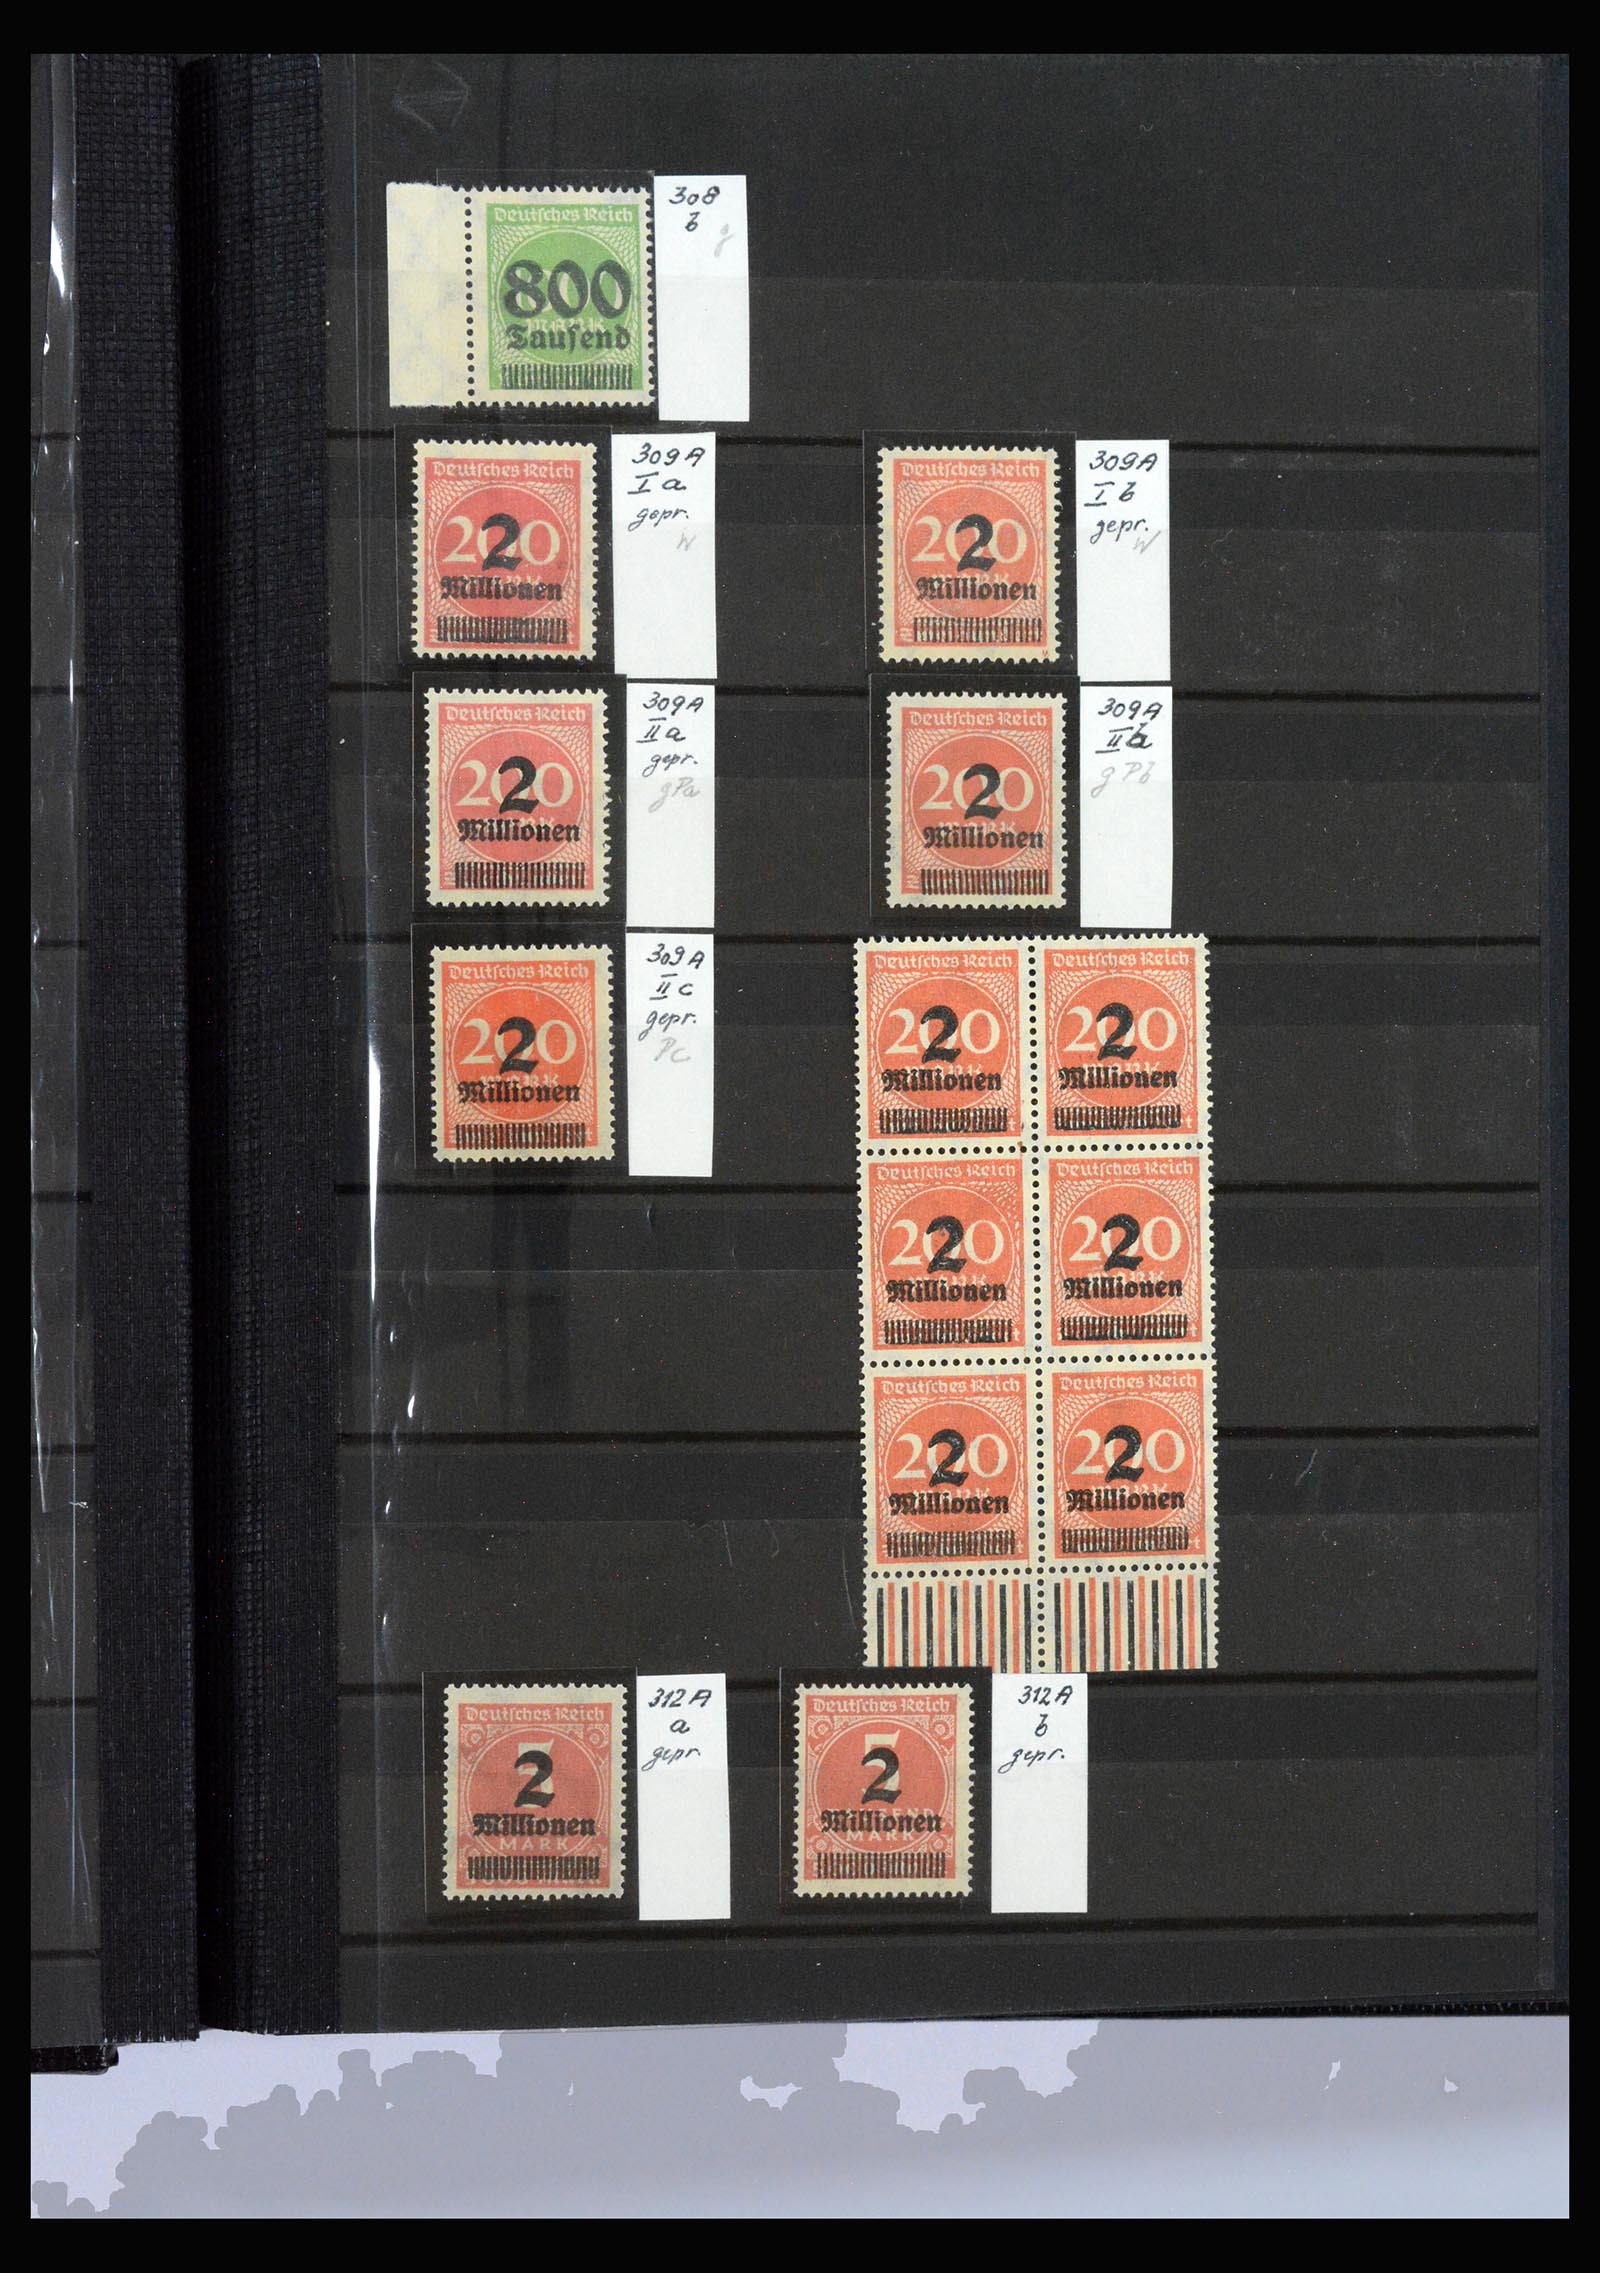 Deutsches Reich
800
Tausend
308
b
g
Deutsches Reich
200
2
Millionen
309A
I a
gepr.
W
Deutsches Reich
200
2
Millionen
309A
I b
gepr.
W
Deutsches Reich
200
2
Millionen
309A
II a
gepr.
gPa
Deutsches Reich
200
2
Millionen
309A
II b
gPb
Deutsches Reich
200
2
Millionen
309A
II c
gepr.
Pc
Deutsches Reich Deutsches Reich
200 200
2 2
Millionen Millionen
Deutsches Reich Deutsches Reich
200 200
2 2
Millionen Millionen
Deutsches Reich Deutsches Reich
200 200
2 2
Millionen Millionen
Deutsches Reich
5
2
Millionen
MARK
312A
a
gepr.
Deutsches Reich
5
2
Millionen
MARK
312A
b
gepr.